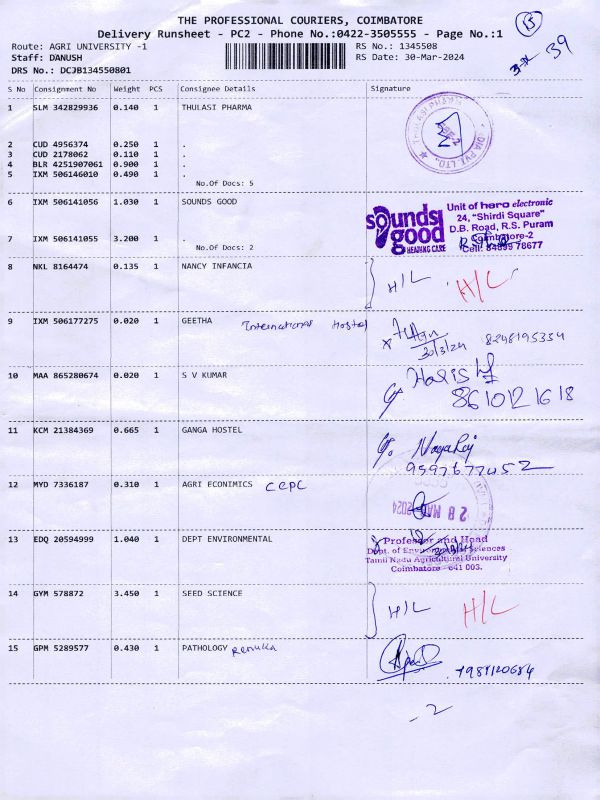 THE PROFESSIONAL COURIERS, COIMBATORE
15
Delivery Runsheet - PC2 - Phone No.:0422-3505555 - Page No.:1
Route: AGRI UNIVERSITY -1
RS No.: 1345508
39
Staff: DANUSH
RS Date: 30-Mar-2024
DRS No.: DCJB134550801
S No Consignment No Weight PCS Consignee Details Signature
1 SLM 342829936 0.140 1 THULASI PHARMA
2 CUD 4956374 0.250 1 .
3 CUD 2178062 0.110 1 .
4 BLR 4251907061 0.900 1 .
5 IXM 506146010 0.490 1 .
No.Of Docs: 5
6 IXM 506141056 1.030 1 SOUNDS GOOD
sounds good
HEARING CARE
Unit of hero electronic
24, "Shirdi Square"
D.B. Road, R.S. Puram
Coimbatore-2
Cell: 84899 78677
7 IXM 506141055 3.200 1 .
No.Of Docs: 2
8 NKL 8164474 0.135 1 NANCY INFANCIA
H/L H/L
9 IXM 506177275 0.020 1 GEETHA International Hostel
30/3/24 8248195334
10 MAA 865280674 0.020 1 S V KUMAR
Harish
8610121618
11 KCM 21384369 0.665 1 GANGA HOSTEL
Nagaraj
9597677052
12 MYD 7336187 0.310 1 AGRI ECONIMICS CEPC
28 MAR 2024
13 EDQ 20594999 1.040 1 DEPT ENVIRONMENTAL
Professor and Head
Dept. of Environmental Sciences
Tamil Nadu Agricultural University
Coimbatore - 641 003.
14 GYM 578872 3.450 1 SEED SCIENCE
H/L H/L
15 GPM 5289577 0.430 1 PATHOLOGY Renuka
- 2